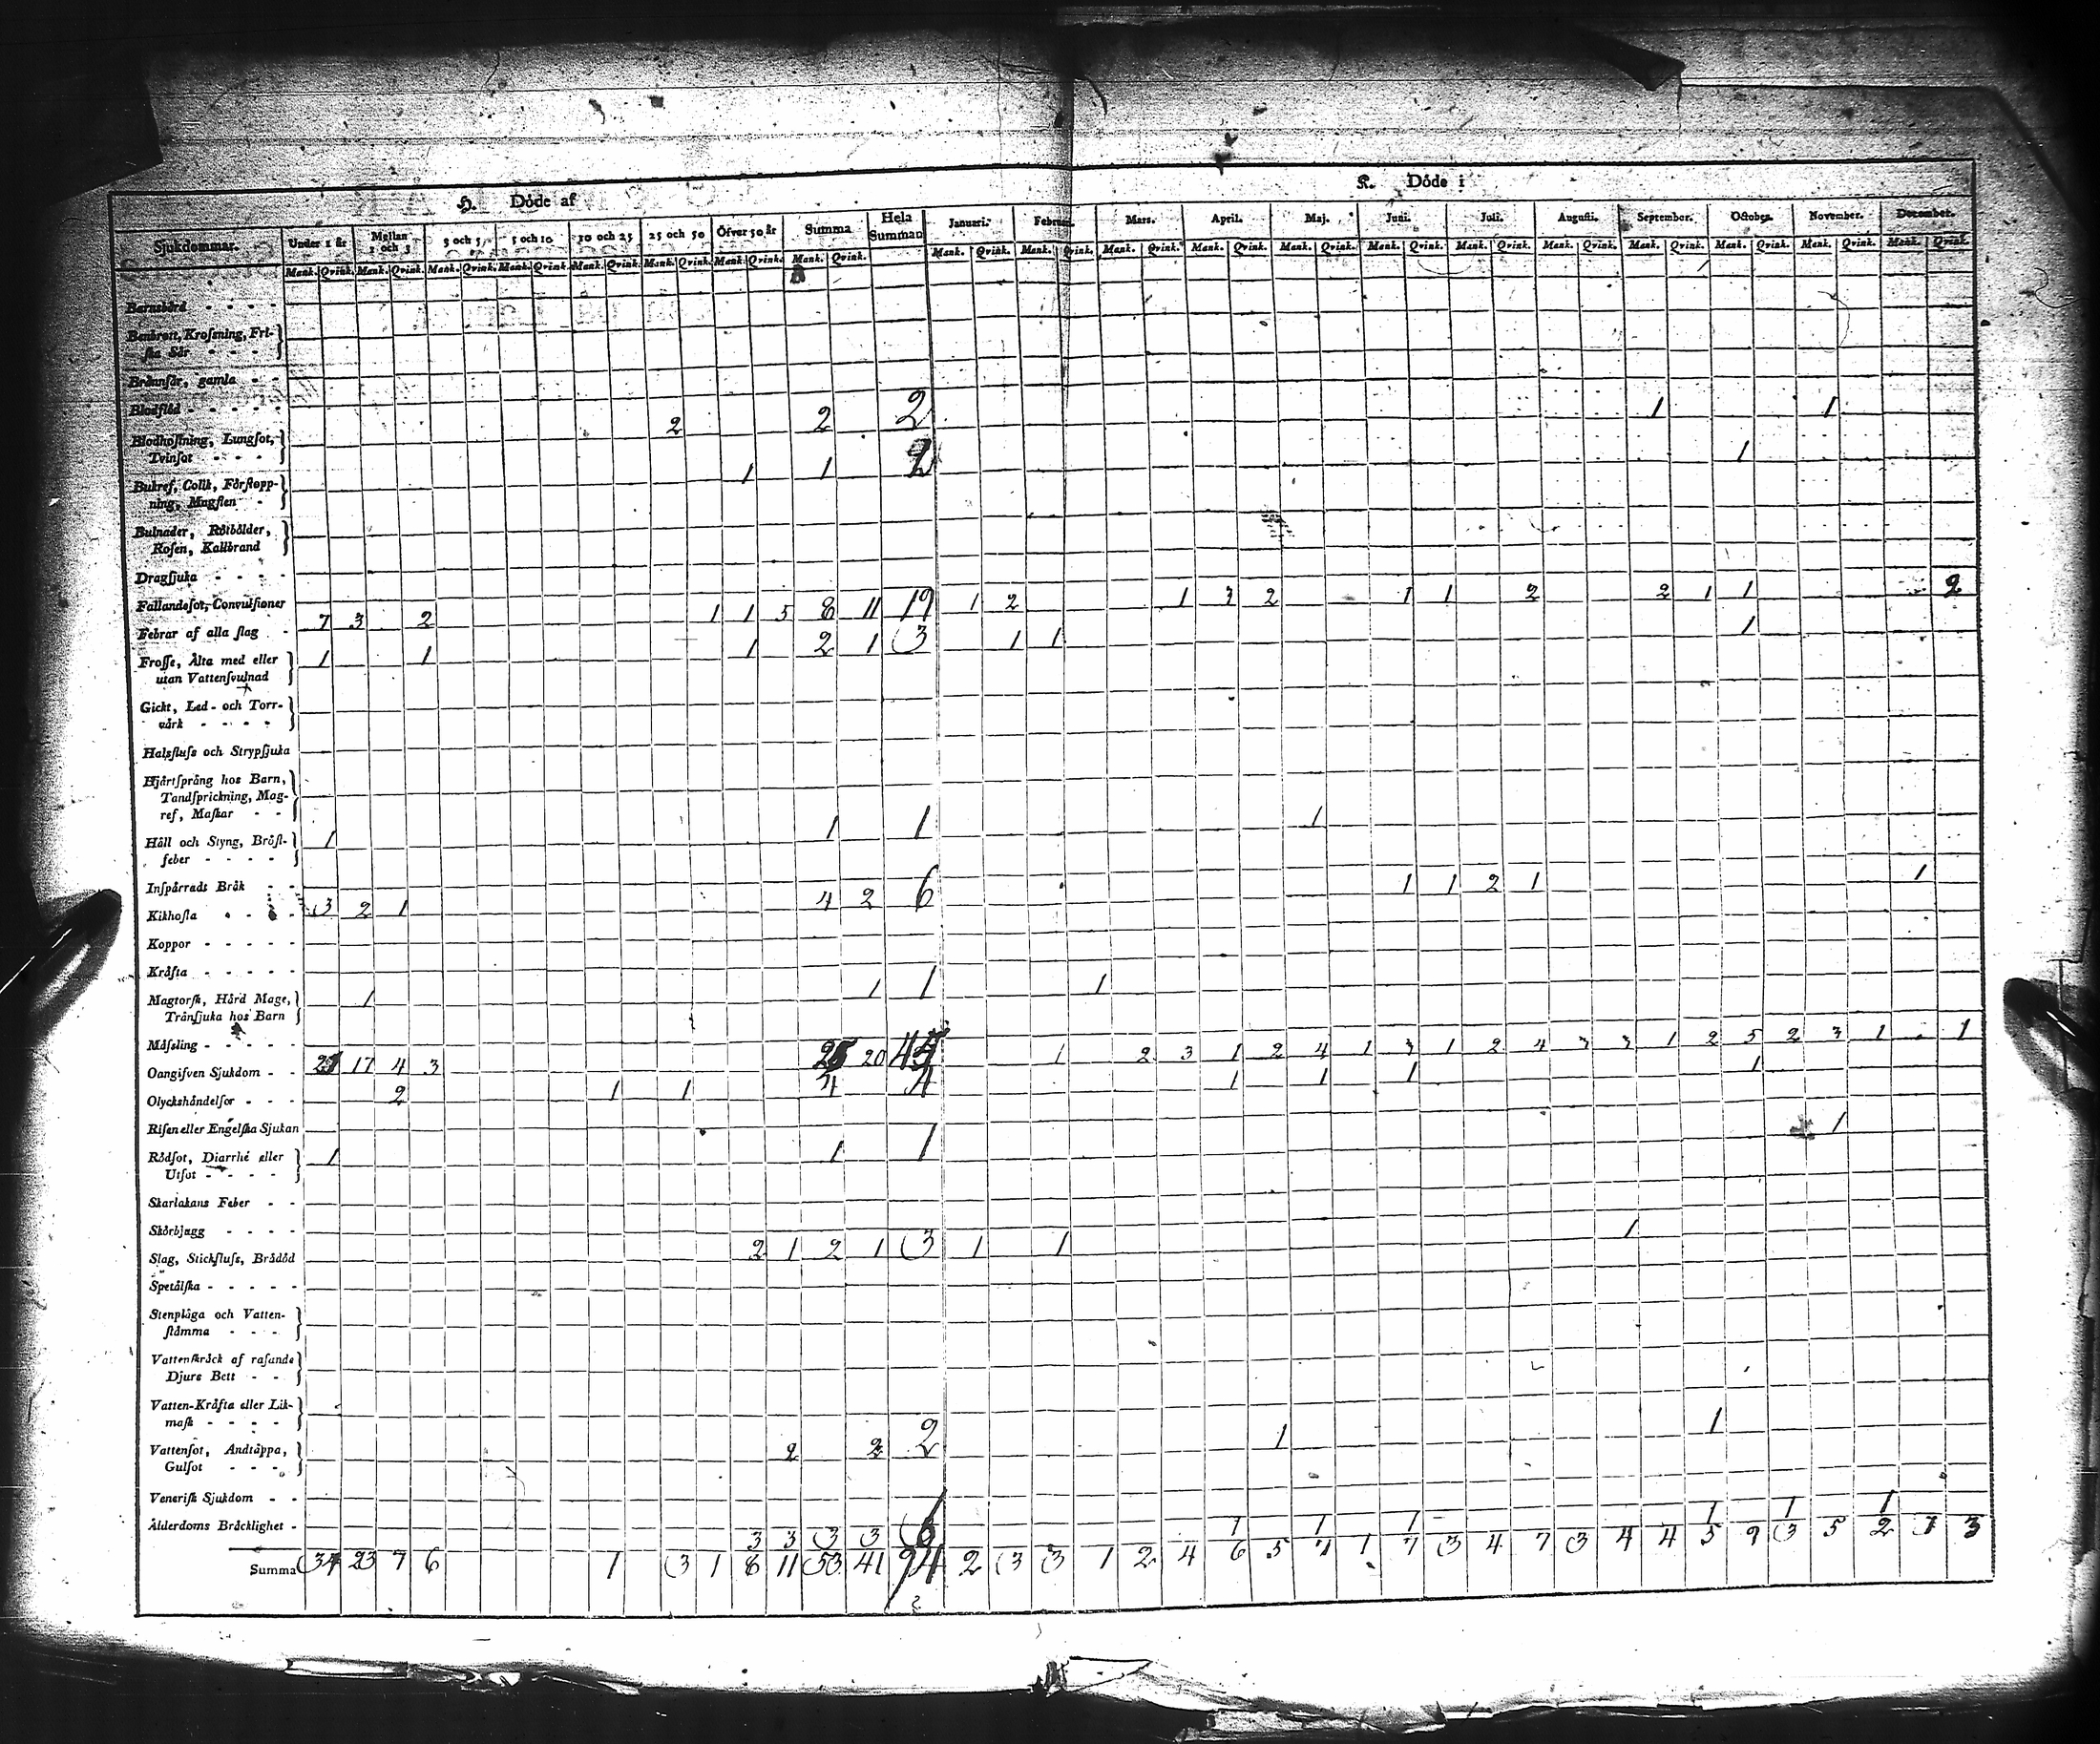 H. Döde af
K. Döde i
Sjukdommar. Under 1 år Mellan 1 och 3 3 och 5 5 och 10 10 och 25 25 och 50 Öfver 50 år Summa Hela Summan Januari. Februari. Mars. April. Maj. Juni. Juli. Augusti. September. October. November. December.
Mank. Qvink. Mank. Qvink. Mank. Qvink. Mank. Qvink. Mank. Qvink. Mank. Qvink. Mank. Qvink. Mank. Qvink. Mank. Qvink. Mank. Qvink. Mank. Qvink. Mank. Qvink. Mank. Qvink. Mank. Qvink. Mank. Qvink. Mank. Qvink. Mank. Qvink. Mank. Qvink. Mank. Qvink. Mank. Qvink.
Barnsbörd - - - -
Benbrott, Krossning, Fri-
ska Sår - - - -
Brännsår, gamla - -
Blodflöd - - - - -
2 2 2 1 1
Blodhostning, Lungsot,
Tvinsot - - - -
1 1 1
Bukref, Colik, Förstopp-
ning, Magsten -
Bulnader, Rötbölder,
Rosen, Kallbrand
Dragsjuka - - - -
Fallandesot, Convulsioner
7 3 2 1 1 5 8 11 19 1 2 1 3 2 1 1 2 2 1 1 2
Febrar af alla slag -
1 1 1 2 1 3 1 1 1
Frosse, Älta med eller
utan Vattensvulnad
Gickt, Led- och Torr-
värk - - - -
Halsfluss och Strypsjuka
Hjärtsprång hos Barn,
Tandsprickning, Mag-
ref, Maskar - -
1 1 1 1
Håll och Styng, Bröst-
feber - - - -
Inspärradt Bråk - -
3 2 1 4 2 6 1 1 2 1 1
Kikhosta - - - -
Koppor - - - - -
Kräfta - - - - -
1 1 1 1
Magtorsk, Hård Mage,
Tränsjuka hos Barn
Mässling - - - - -
17 4 3 20 45 1 2 3 1 2 4 1 3 1 2 4 3 3 1 2 5 2 3 1 1
Oangifven Sjukdom - -
2 1 1 4 4 1 1 1 1
Olyckshändelser - - -
Risen eller Engelska Sjukan
1 1 1 1
Rödsot, Diarrhé eller
Utsot - - - - -
Skarlakans Feber - -
Skörbjugg - - - -
2 1 2 1 3 1 1 1
Slag, Stickfluss, Brådöd
Spetälska - - - - -
Stenplåga och Vatten-
stämma - - - -
Vattenskräck af rasande
Djurs Bett - - -
Vatten-Kräfta eller Lik-
mask - - - -
2 2 2 1 1
Vattensot, Andtäppa,
Gulsot - - -
Venerisk Sjukdom - -
Ålderdoms Bräcklighet -
3 3 3 3 6 1 1 1 1 1 1
Summa 34 23 7 6 1 3 1 8 11 53 41 94 2 3 3 1 2 4 6 5 7 1 7 3 4 7 3 4 4 5 9 3 5 2 1 3